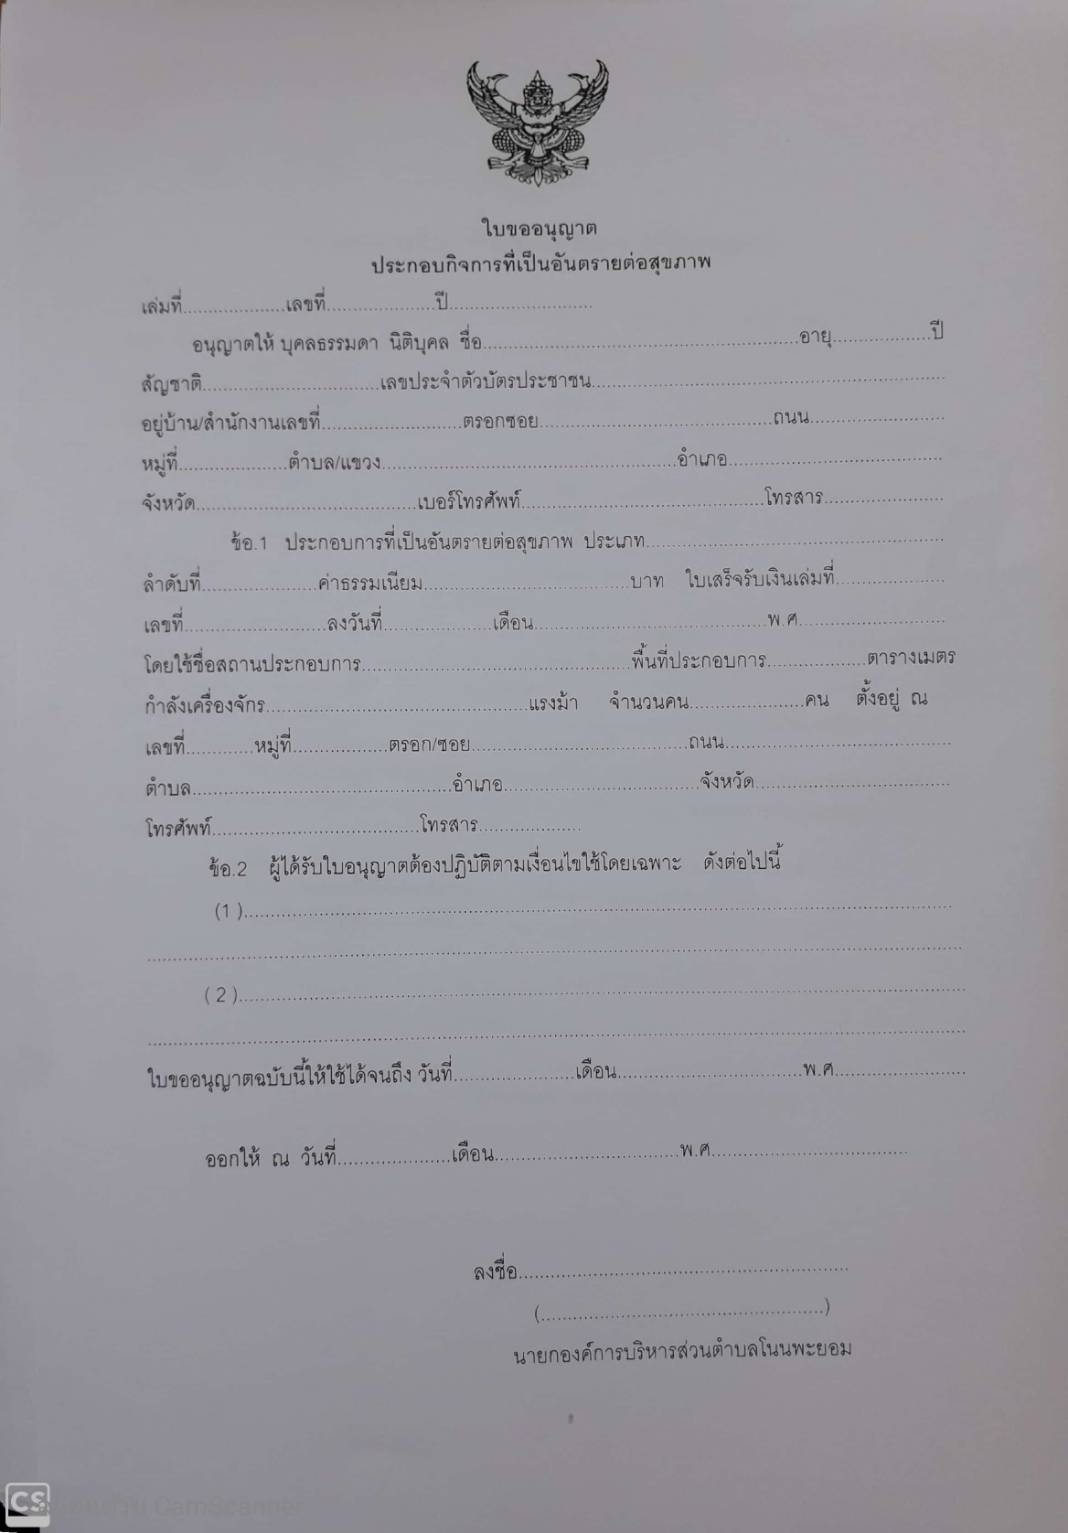 ใบขออนุญาต
ประกอบกิจการที่เป็นอันตรายต่อสุขภาพ
เล่มที่....................เลขที่.....................ปี............................
อนุญาตให้ บุคลธรรมดา นิติบุคล ชื่อ..............................................................อายุ...................ปี
สัญชาติ...................................เลขประจำตัวบัตรประชาชน.....................................................................
อยู่บ้าน/สำนักงานเลขที่...........................ตรอกซอย..............................................ถนน..........................
หมู่ที่.....................ตำบล/แขวง..........................................................อำเภอ..........................................
จังหวัด...........................................เบอร์โทรศัพท์................................................โทรสาร.......................
ข้อ.1 ประกอบการที่เป็นอันตรายต่อสุขภาพ ประเภท..........................................................
ลำดับที่......................ค่าธรรมเนียม........................................บาท ใบเสร็จรับเงินเล่มที่.....................
เลขที่............................ลงวันที่.....................เดือน..............................................พ.ศ............................
โดยใช้ชื่อสถานประกอบการ.....................................................พื้นที่ประกอบการ...................ตารางเมตร
กำลังเครื่องจักร...................................................แรงม้า จำนวนคน......................คน ตั้งอยู่ ณ
เลขที่.............หมู่ที่...................ตรอก/ซอย...........................................ถนน............................................
ตำบล...................................................อำเภอ......................................จังหวัด......................................
โทรศัพท์........................................โทรสาร....................
ข้อ.2 ผู้ได้รับใบอนุญาตต้องปฏิบัติตามเงื่อนไขใช้โดยเฉพาะ ดังต่อไปนี้
(1 )..........................................................................................................................................
................................................................................................................................................................
( 2 )..............................................................................................................................................
................................................................................................................................................................
ใบขออนุญาตฉบับนี้ให้ใช้ได้จนถึง วันที่........................เดือน....................................พ.ศ..........................
ออกให้ ณ วันที่......................เดือน....................................พ.ศ......................................
ลงชื่อ.................................................................
(.......................................................)
นายกองค์การบริหารส่วนตำบลโนนพะยอม
CS
CamScanner